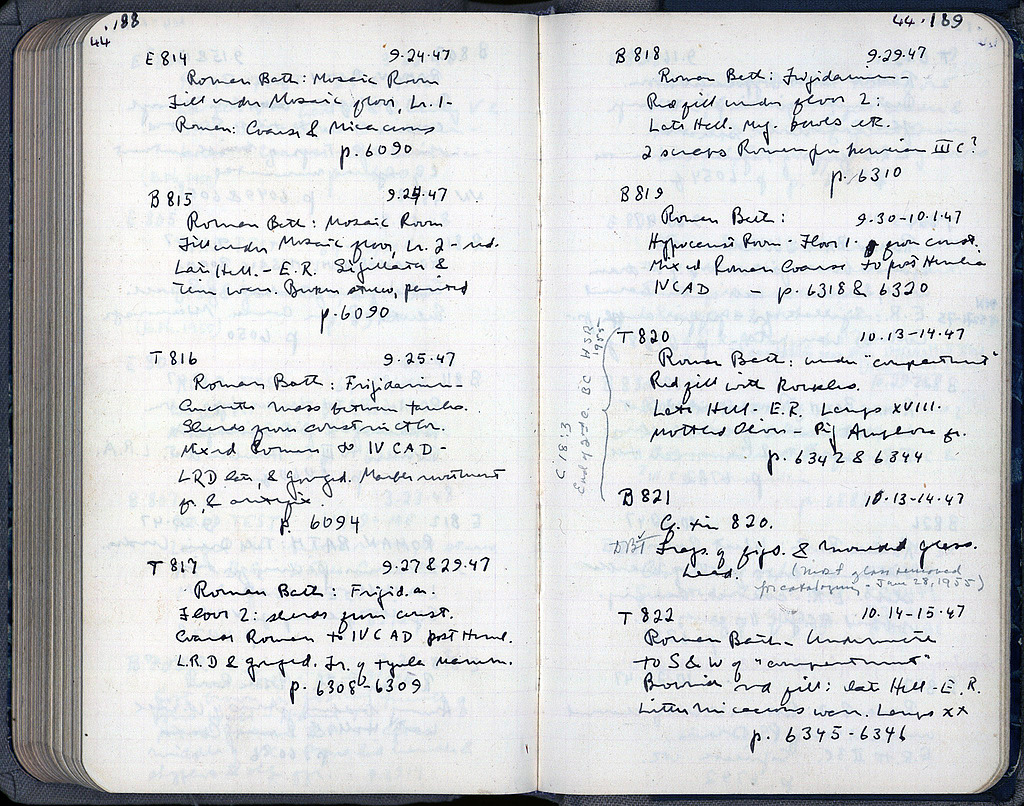 44
.188
E 814 9-24-47
Roman Bath: Mosaic Room
Fill under Mosaic floor, Lr. 1-
Roman: Coarse & Micaceous
p. 6090
B 815 9-24-47
Roman Bath: Mosaic Room
Fill under Mosaic floor, Lr. 2 - red.
Late Hell. - E.R. Sigillata &
Thin ware. Broken stucco, painted
p. 6090
T 816 9-25-47
Roman Bath: Frigidarium
Concrete mass between tanks.
Sherds from construction.
Mixed Roman to IV C AD -
LRD late, & gouged. Marble revetment
fr. & antefix.
p. 6094
T 817 9-27 & 29-47
Roman Bath: Frigidar.
Floor 2: sherds from const.
Coarse Roman to IV C AD post Herul.
L.R.D & gouged. Fr. of tegula mamm.
p. 6308-6309
44.189
B 818 9-29-47
Roman Bath: Frigidarium -
Red fill under floor 2:
Late Hell. Meg. bowls etc.
2 scraps Roman III C?
p. 6310
B 819
Roman Bath: 9-30-10-1-47
Hypocaust Room - Floor 1. from const.
Mixed Roman Coarse to post Herulian
IV C AD - p. 6318 & 6320
T 820 10-13-14-47
Roman Bath: under "compartment"
Red fill with
Late Hell - E.R. Lamps XVIII.
Mottled Olive - Amphora fr.
p. 6342 & 6344
C 18:3
End of 2nd c. BC HSR
1955
B 821 10-13-14-47
Co. tin 820.
DBT Frags. of figs. & moulded glass.
bead. (most glass removed
for cataloguing - Jan 28, 1955)
T 822 10-14-15-47
Roman Bath -
to S & W of "compartment"
Brownish red fill: late Hell - E.R.
Little micaceous ware. Lamps XX
p. 6345-6346